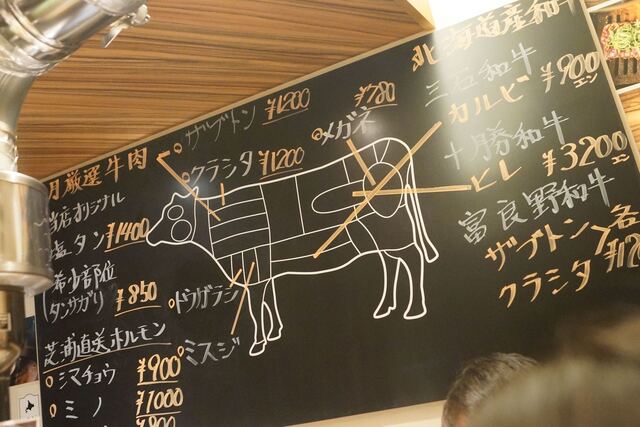 月厳選牛肉
当店オリジナル
塩タン ¥1400
希少部位
タンサガリ ¥850
芝浦直送ホルモン
シマチョウ ¥900
ミノ ¥1000
ザブトン ¥1200
クラシタ ¥1200
メガネ ¥780
ドウガラシ
ミスジ
北海道産和牛
三石和牛
カルビ ¥900エン
十勝和牛
ヒレ ¥3200エン
富良野和牛
ザブトン＞各
クラシタ